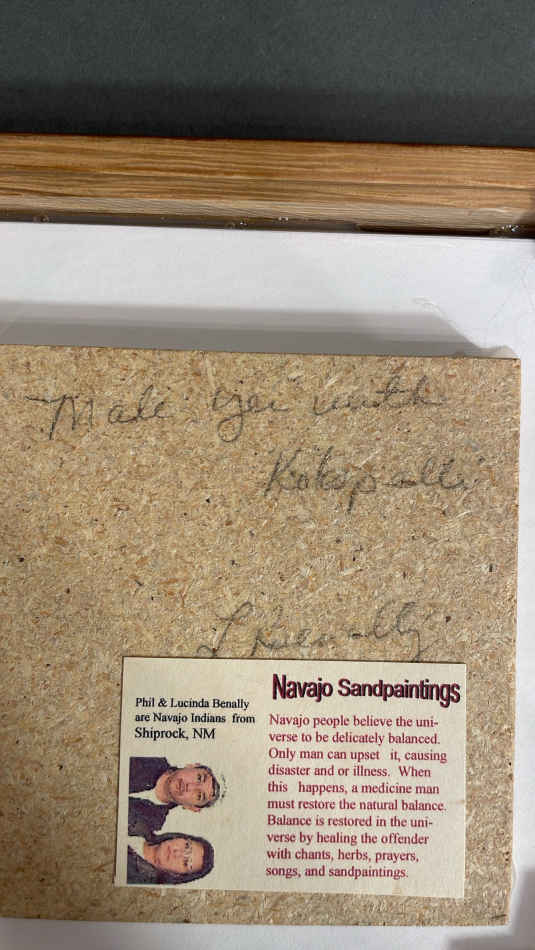 Male Yei with
Kokopelli
L Benally
Navajo Sandpaintings
Phil & Lucinda Benally
are Navajo Indians from
Shiprock, NM
Navajo people believe the uni-
verse to be delicately balanced.
Only man can upset it, causing
disaster and or illness. When
this happens, a medicine man
must restore the natural balance.
Balance is restored in the uni-
verse by healing the offender
with chants, herbs, prayers,
songs, and sandpaintings.